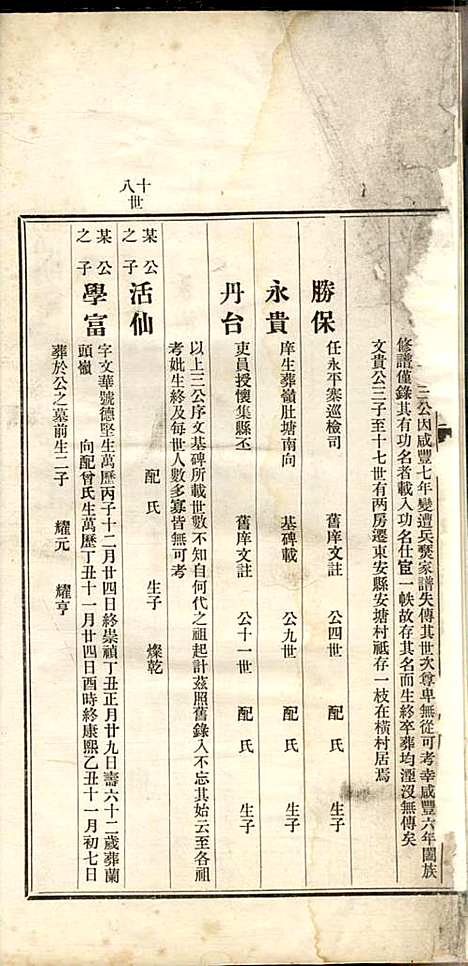 三公因咸豐七年變遭兵燹家譜失傳其世次尊卑無從可考幸咸豐六年闔族
修譜僅錄其有功名者載入功名仕宦一帙故存其名而生終卒葬均湮沒無傳矣
文貴公三子至十七世有两房遷東安縣安塘村祗存一枝在橫村居焉
勝保 任永平寨巡檢司 舊庠文註 公四世 配 氏 生子
永貴 庠生葬嶺肚塘南向 基碑載 公九世 配 氏 生子
丹台 吏員授懷集縣丞 舊庠文註 公十一世 配 氏 生子
以上三公序文基碑所載世數不知自何代之祖起計茲照舊錄入不忘其始云至各祖
考妣生終及每世人數多寡皆無可考
十八世
某公之子 活仙 配 氏 生子 燦乾
某公之子 學富 字文華號德堅生萬歷丙子十二月廿四日終崇禎丁丑正月廿九日壽六十二歲葬蘭
頭嶺 向配曾氏生萬歷丁丑十一月廿四日酉時終康熙乙丑十一月初七日
葬於公之墓前生二子 耀元 耀亨